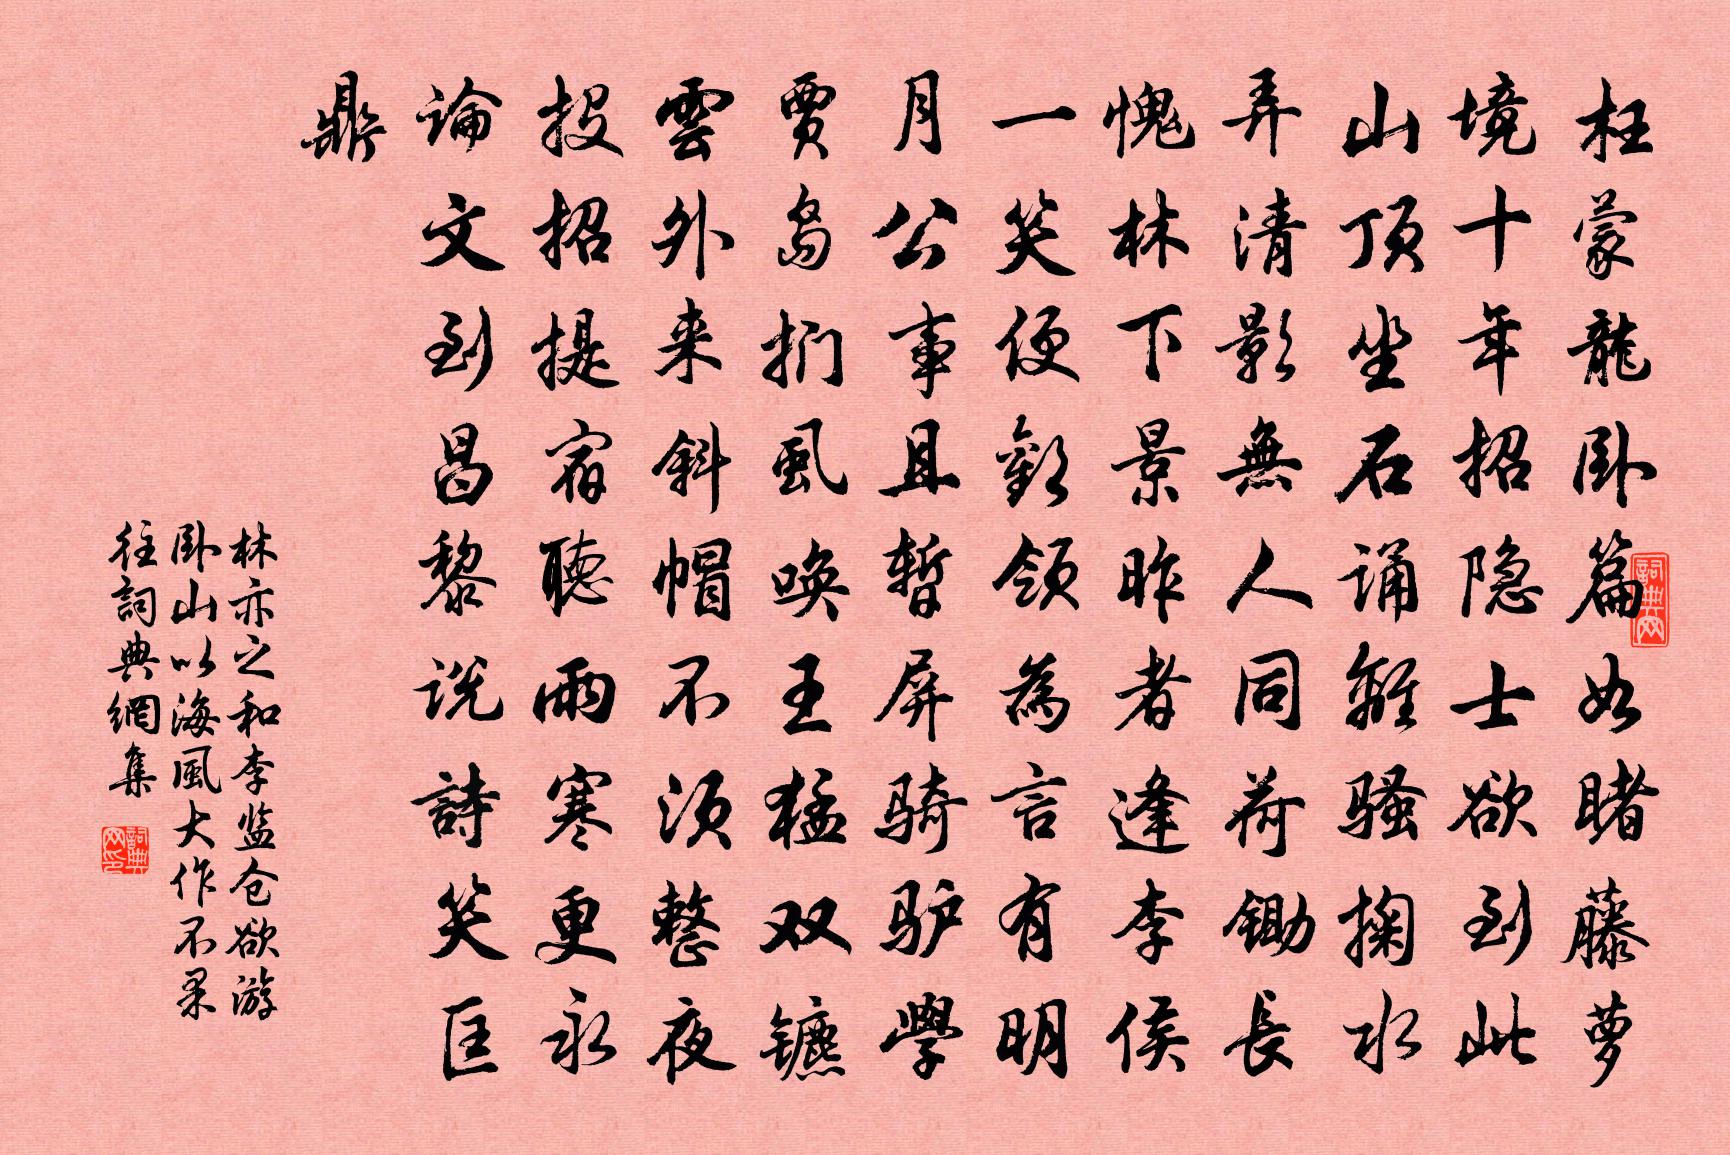 枉蒙龍卧篇如睹藤萝
境十年招隐士欲到此
山顶坐石诵離骚掬水
弄清影無人同荷锄長
愧林下景昨者逢李侯
一笑便歡领為言有明
月公事且暂屏骑驴學
贾岛扪虱唤王猛双镳
雲外来斜帽不须整夜
投招提宿聽雨寒更永
論文到昌黎说詩笑匡
鼎
林亦之和李监仓欲游
卧山以海風大作不果
往詞典網集
詞典网
詞典网印